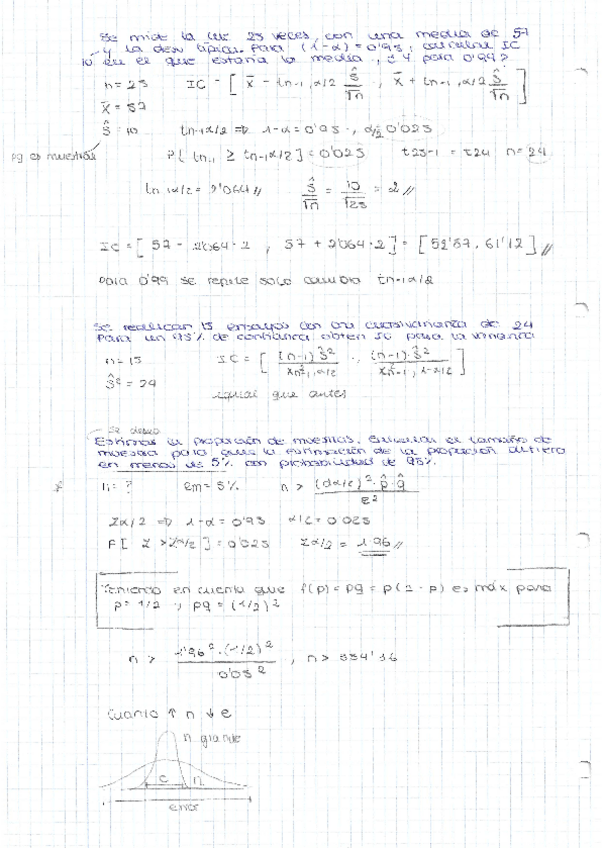 Se mide la luz 25 veces, con una media de 57
y la desv típica. Para (1-α) = 0'95, calcular IC
10 en el que estaría la media, ¿ y para 0'99?
n = 25 IC = [ x̄ - tn-1, α/2 Ŝ/√n , x̄ + tn-1, α/2 Ŝ/√n ]
x̄ = 57
Ŝ = 10 tn-1 α/2 ⇒ 1-α = 0'95 , α/2 0'025
pq es muestral
P[ tn-1 ≥ tn-1 α/2 ] = 0'025 t25-1 = t24 n = 24
tn-1 α/2 = 2'064 // Ŝ/√n = 10/√25 = 2 //
IC = [ 57 - 2'064 · 2 , 57 + 2'064 · 2 ] = [ 52'87, 61'12 ] //
para 0'99 se repite solo cambia tn-1 α/2
Se realizan 15 ensayos con una cuasivarianza de 24
Para un 95% de confianza obten IC para la varianza
n = 15 IC = [ (n-1) Ŝ² / Xn²-1, α/2 , (n-1) · Ŝ² / Xn²-1, 1-α/2 ]
Ŝ² = 24
igual que antes
Se desea
Estimar la proporción de muestras. Calcular el tamaño de
muestra para que la estimación de la proporción difiera
en menos de 5% con probabilidad de 95%.
n = ? em = 5% n > (zα/2)² · p̂ · q̂ / e²
Zα/2 ⇒ 1-α = 0'95 α/2 = 0'025
P[ Z > Zα/2 ] = 0'025 Zα/2 = 1'96 //
Teniendo en cuenta que f(p) = pq = p(1-p) es máx para
p = 1/2 , pq = (1/2)²
n > 1'96² · (1/2)² / 0'05² , n > 384'16
Cuanto ↑ n ↓ e
n grande
n
error